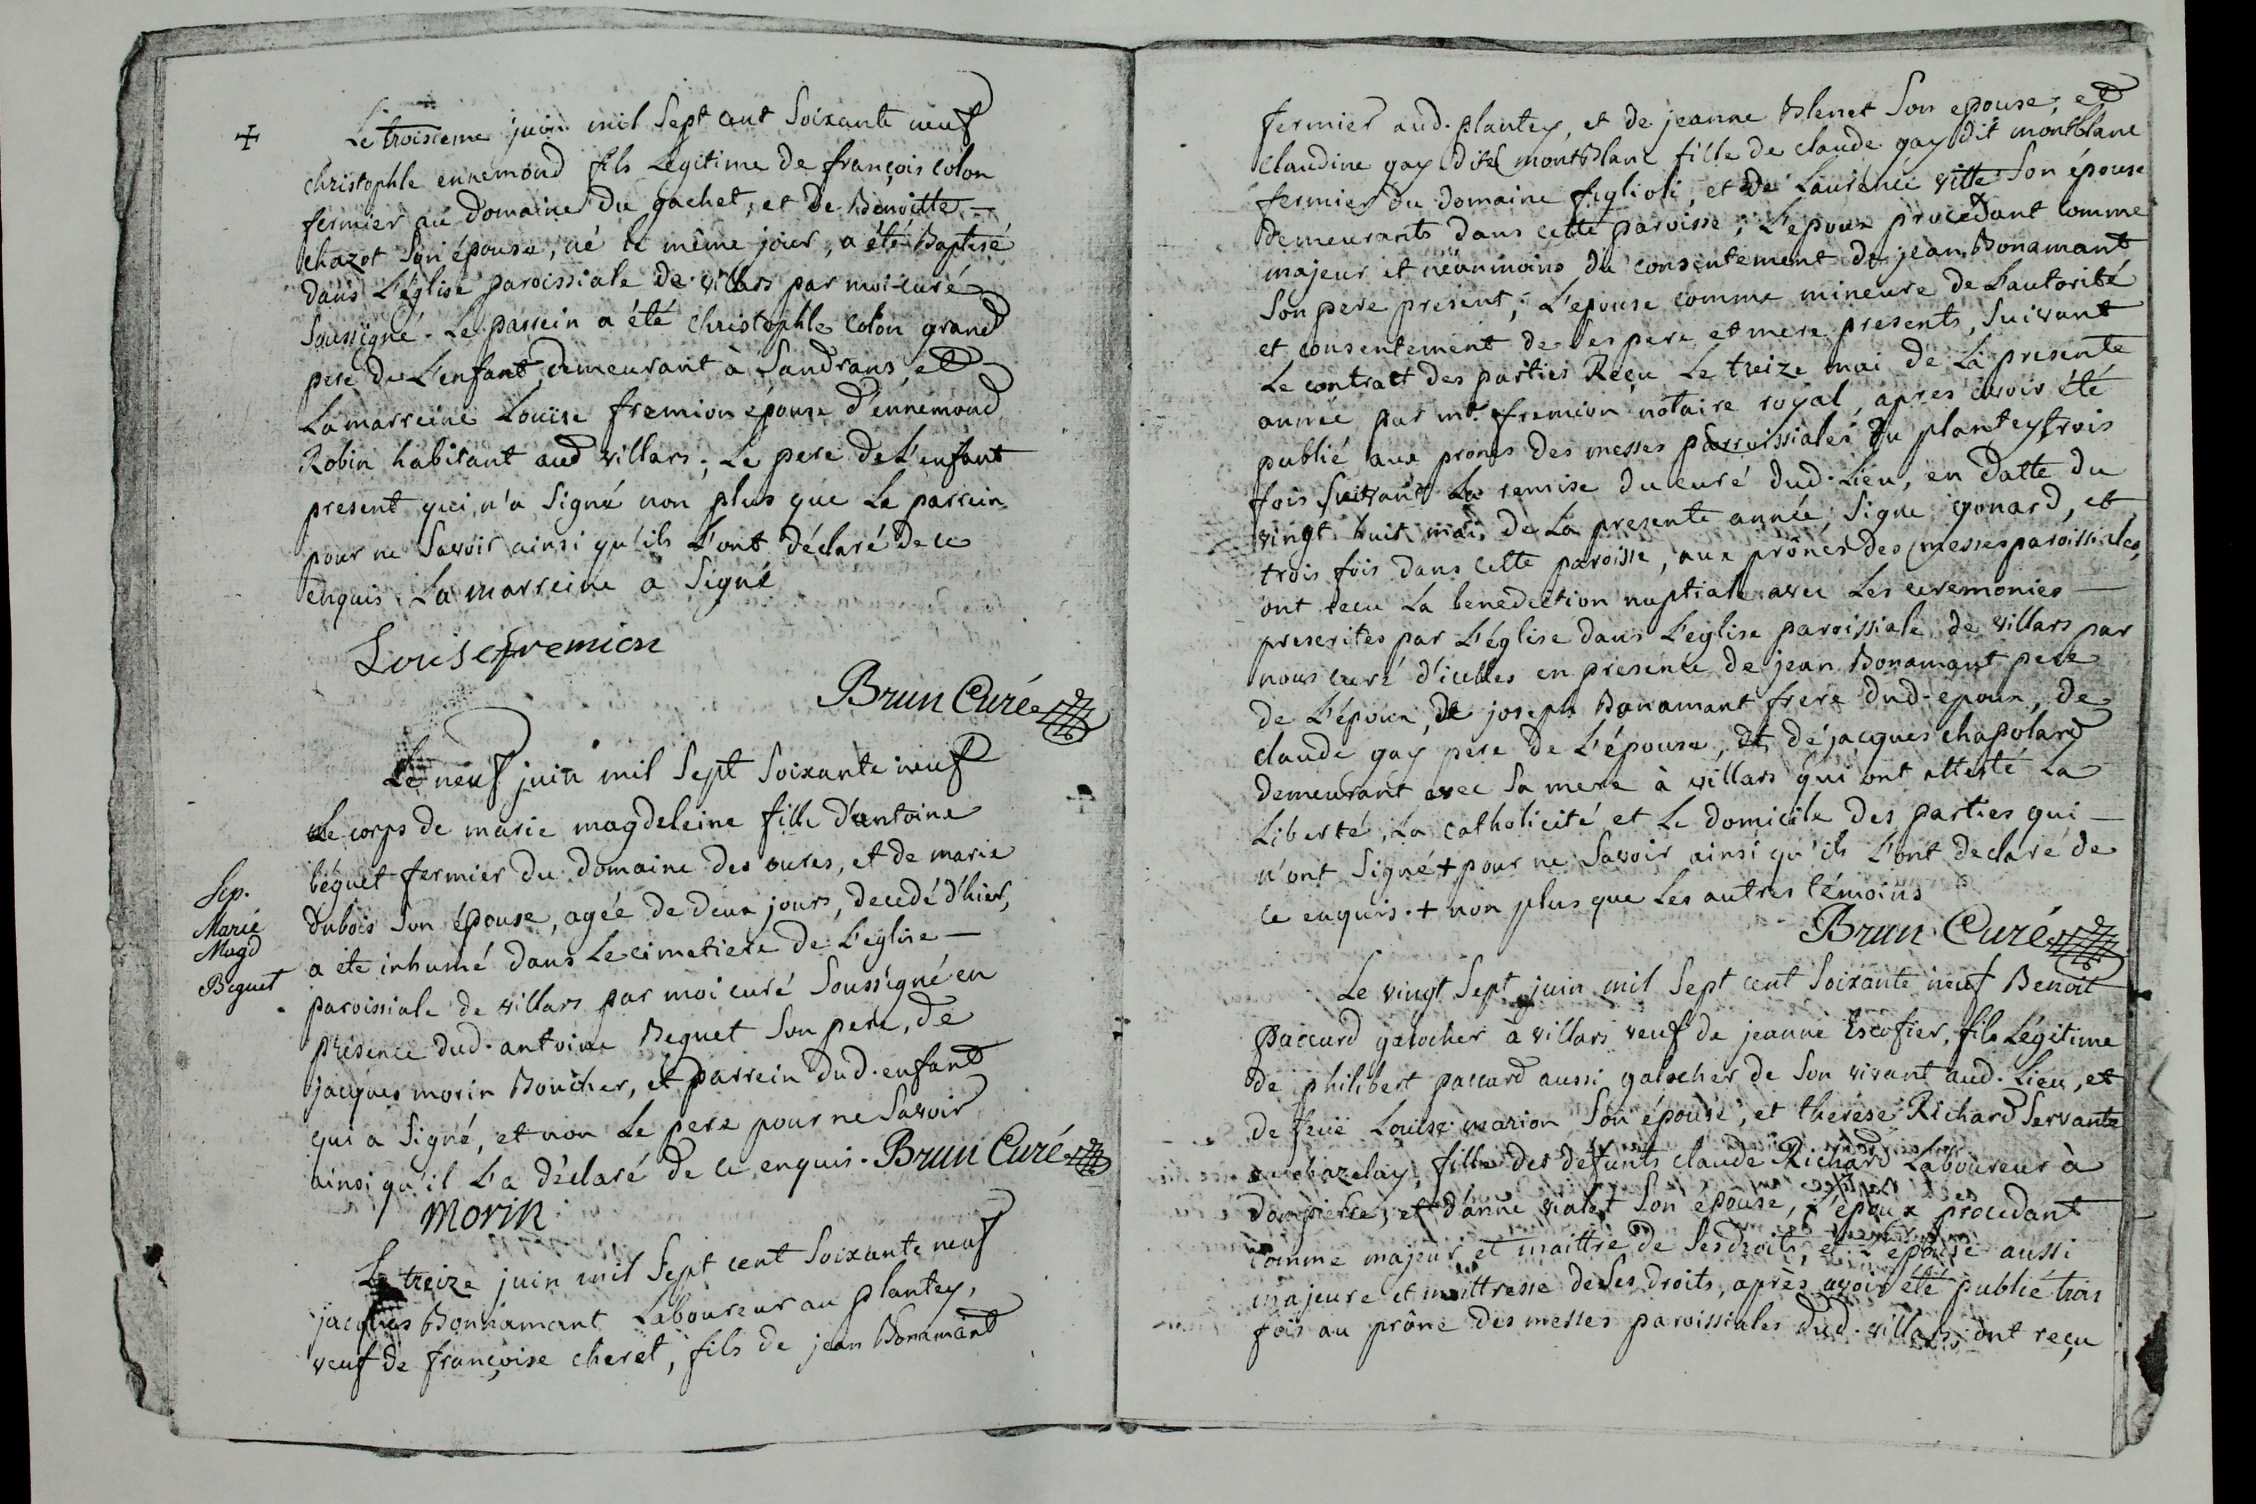 +
Le troisieme juin mil Sept cent Soixante neuf
christophle ennemond fils Legitime de françois colon
fermier au domaine du gachet, et de Benoitte
chazot Son épouse, né le même jour, a été Baptisé
dans L'église paroissiale de villars par moi curé
Soussigné. Le parrein a été christophle colon grand
pere de L'enfant demeurant à Sandrans, et
La marreine Louise fremion épouse d'ennemond
Robin habitant aud villars; Le pere de L'enfant
present qui n'a Signé non plus que Le parrein
pour ne Savoir ainsi qu'ils L'ont déclaré de ce
enquis. La marreine a Signé
Louise fremion
Brun Curé
Le neuf juin mil Sept Soixante neuf
Le corps de marie magdeleine fille d'antoine
béguet fermier du domaine des oures, et de marie
dubois Son épouse, agée de deux jours, decedé d'hier,
a éte inhumé dans Le cimetiere de L'eglise
paroissiale de villars par moi curé Soussigné en
présence dud. antoine Beguet Son pere, de
jacques morin Boucher, et parrein dud. enfant
qui a Signé, et non Le pere pour ne Savoir
ainsi qu'il L'a déclaré de ce enquis. Brun Curé
morin
Sep.
Marie
Magd
Beguet
Le treize juin mil Sept cent Soixante neuf
jacques Bonnamant Laboureur au plantey,
veuf de françoise cheret, fils de jean Bonamant
fermier aud. plantey, et de jeanne Blenet Son epouse, et
claudine gay dite montblanc fille de claude gay dit montblanc
fermier du domaine figlioli, et de Laurence ville Son épouse
demeurants dans cette paroisse; L'epoux procedant comme
majeur et néanmoins du consentement de jean Bonamant
Son pere present; L'epouse comme mineure de L'autorité
et consentement de Ses pere et mere presents, Suivant
Le contratt des parties Reçu Le treize mai de La presente
année par mt. fremion notaire royal, après avoir été
publié aux prones des messes parroissiales du plantey trois
fois Suivant La remise du curé dud. Lieu, en datte du
vingt huit mai de La presente année, Signé gonard, et
trois fois dans cette paroisse, aux prônes des messes paroissiales,
ont recu La benediction nuptiale avec Les ceremonies
prescrites par L'église dans L'eglise paroissiale de villars par
nous curé d'icelles en presence de jean Bonamant pere
de L'époux, de joseph Bonamant frere dud. epoux, de
claude gay pere de L'épouse, et de jacques chapolard
demeurant avec Sa mere à villars qui ont attesté La
Liberté, La catholicité et Le domicile des parties qui
n'ont Signé + pour ne Savoir ainsi qu'ils L'ont declaré de
ce enquis. + non plus que Les autres témoins
Brun Curé
Le vingt Sept juin mil Sept cent Soixante neuf Benoit
paccard galocher à villars veuf de jeanne Escofier, fils Légitime
de philibert paccard aussi galocher de Son vivant aud. Lieu, et
de feuë Louise marion Son épouse, et therése Richard Servante
au chazelay, fille des defunts claude Richard Laboureur à
dompierre, et d'anne vialet Son épouse, L'époux procedant
comme majeur et maittre de Ses droits, et L'épouse aussi
majeure et maittresse de Ses droits, après avoir été publié trois
fois au prône des messes paroissiales dud. villars, ont reçu